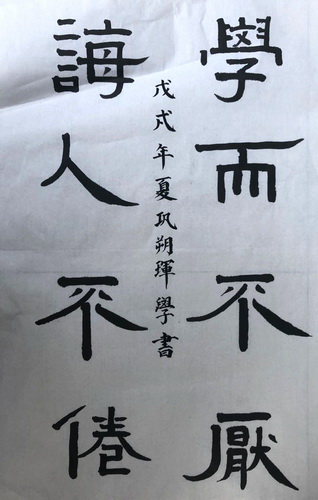 學而不厭
誨人不倦
戊戌年夏巩朔琿學書